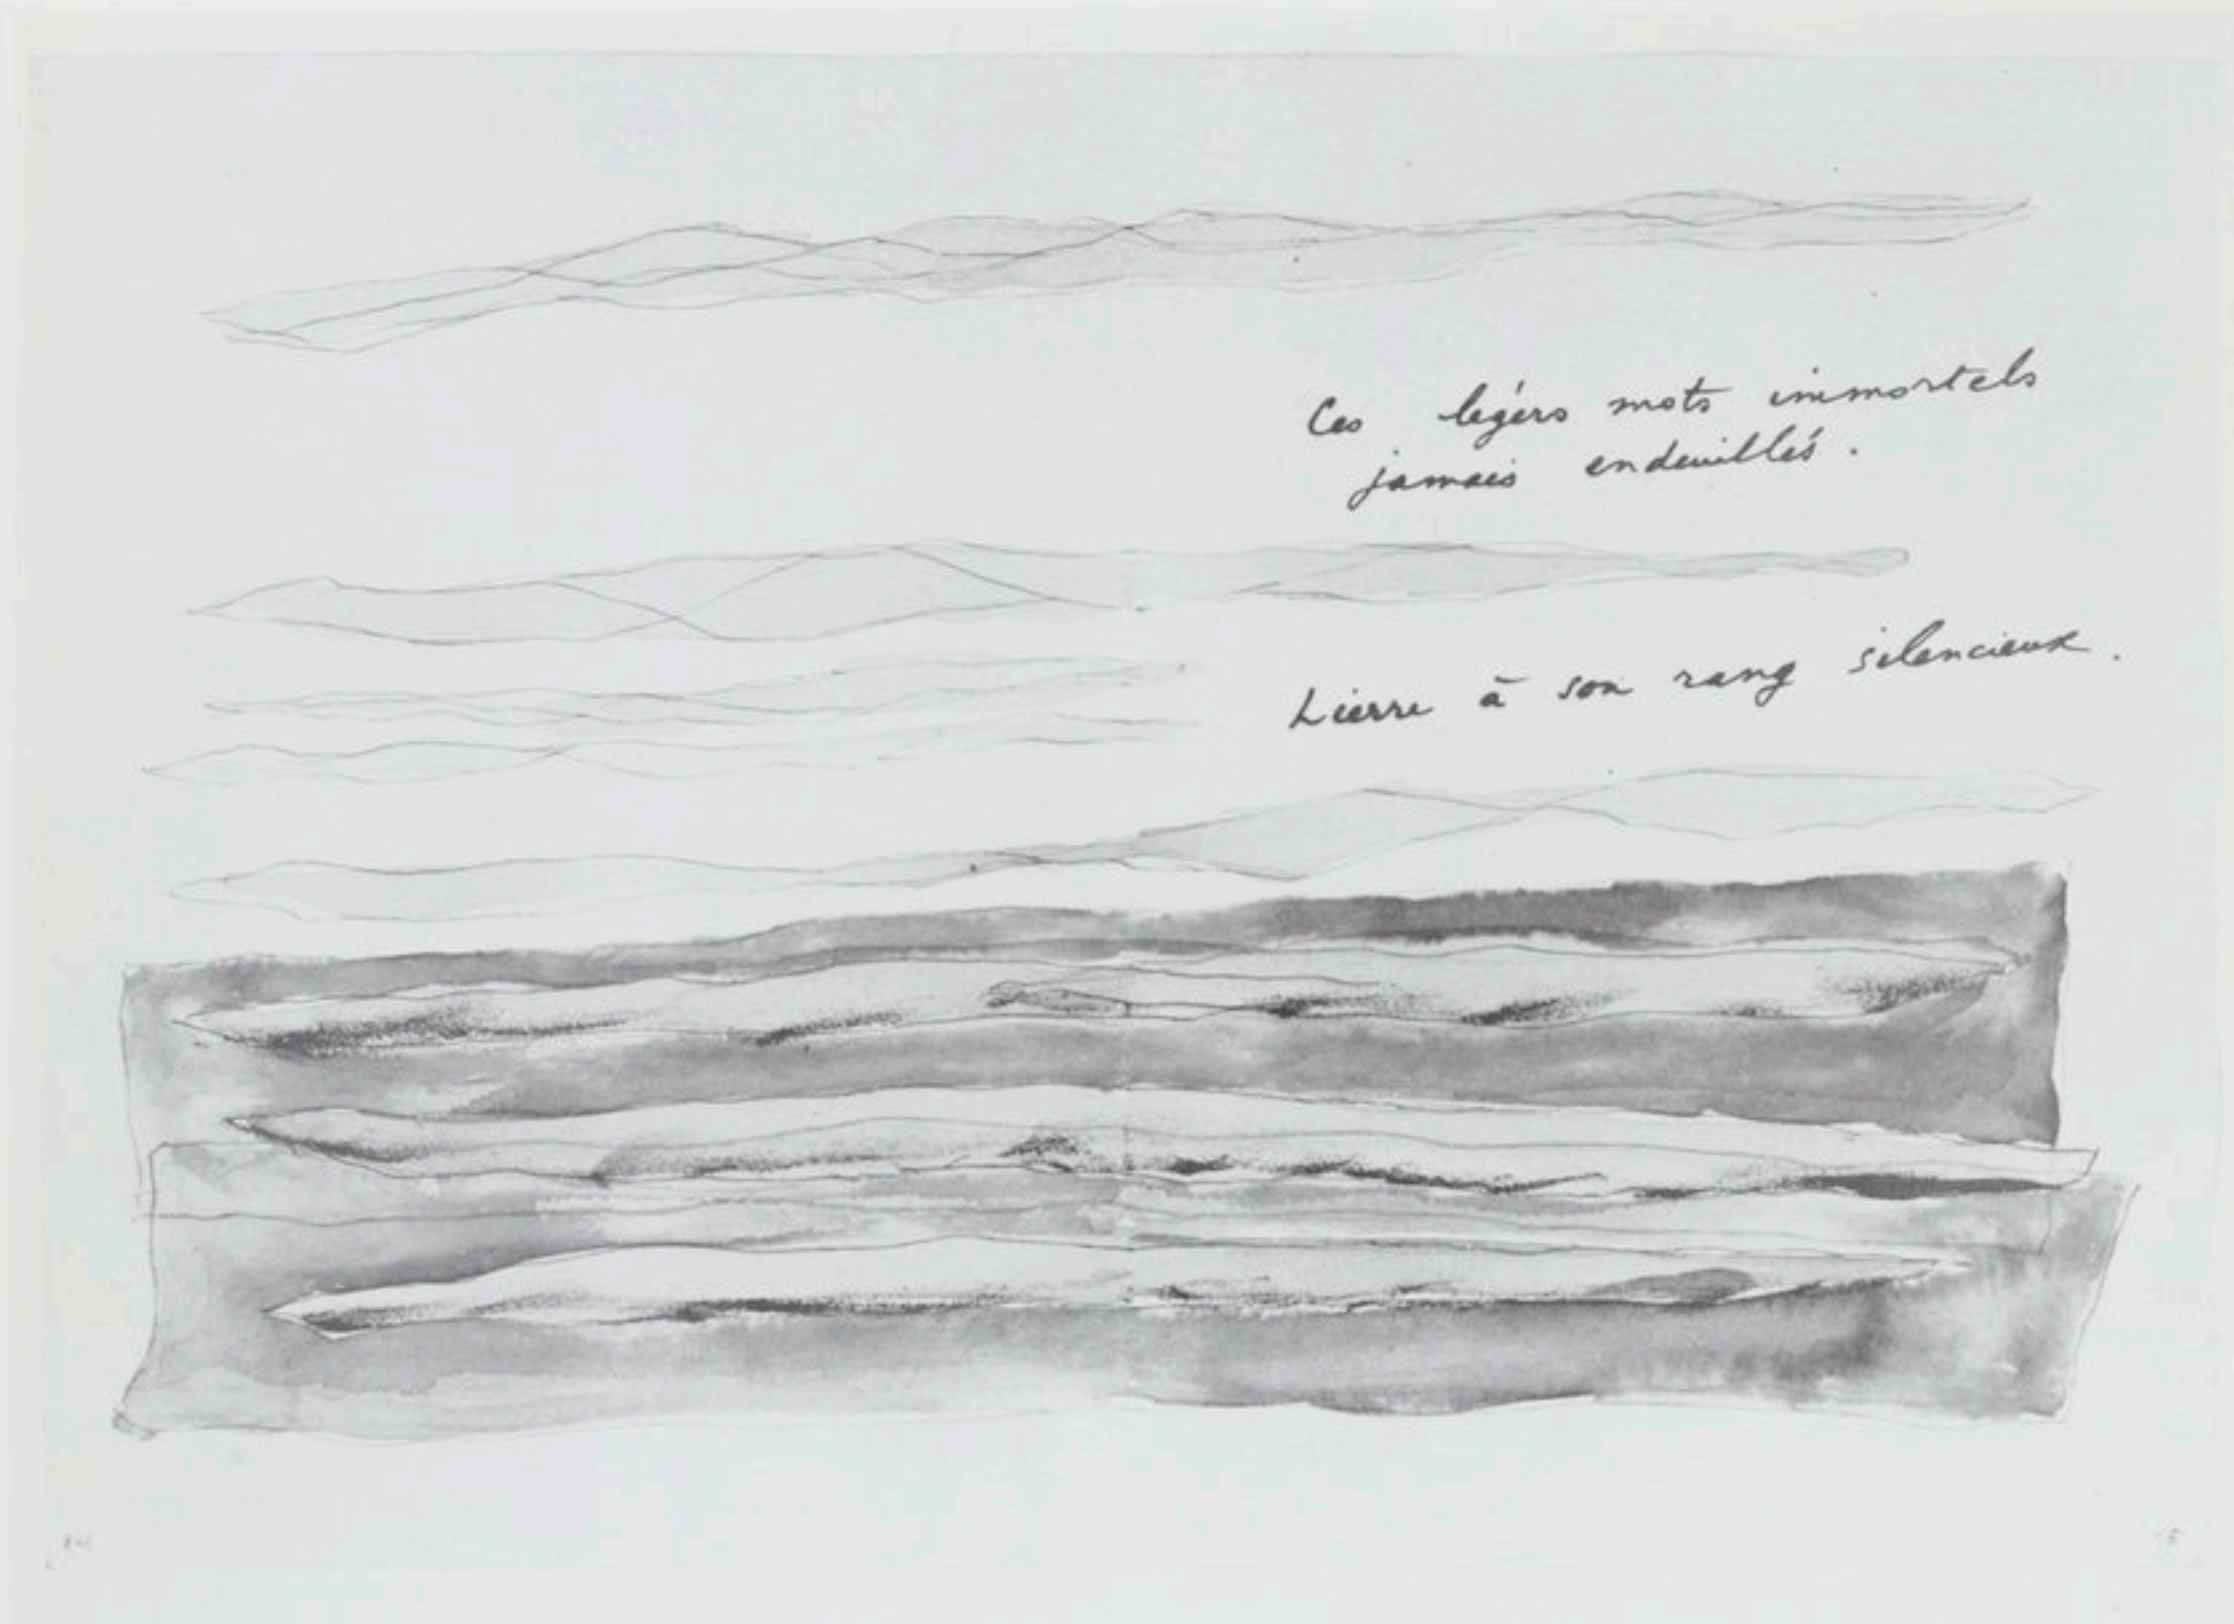 Ces légers mots immortels
jamais endeuillés.
Lierre à son rang silencieux.